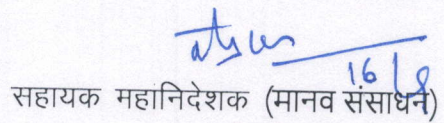 16/8
सहायक महानिदेशक (मानव संसाधन)